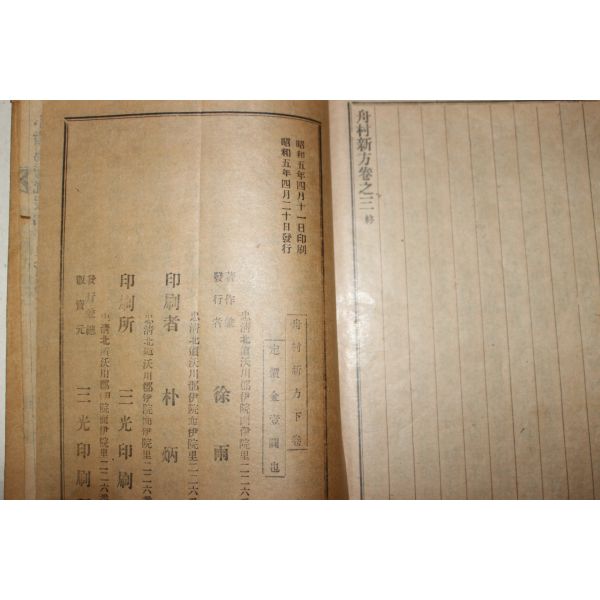 舟村新方卷之三 終
舟村新方下卷
定價金壹圓也
昭和五年四月十一日印刷
昭和五年四月二十日發行
忠淸北道沃川郡伊院面伊院里二二六
著作兼
發行者 徐雨
忠淸北道沃川郡伊院面伊院里二二六
印刷者 朴炳
忠淸北道沃川郡伊院面伊院里二二六
印刷所 三光印刷
忠淸北道沃川郡伊院面伊院里二二六
發行兼總
販賣元 三光印刷